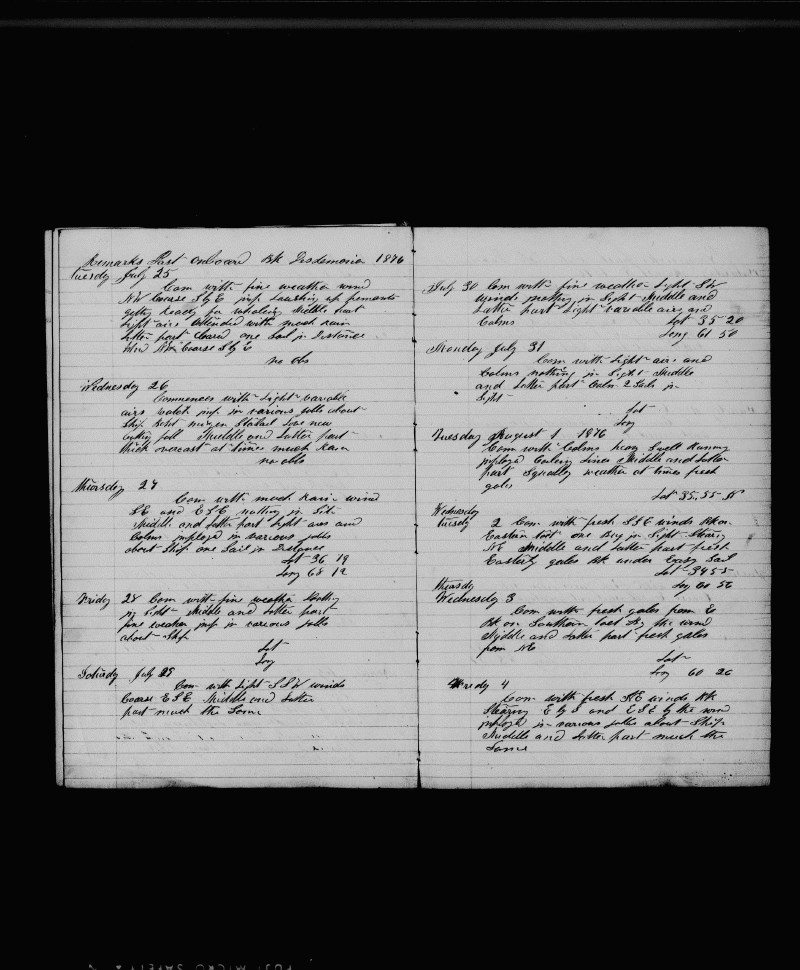 Remarks Past onboard Bk Desdemonia 1876
Tuesday July 25
Com with fine weather wind
NW Coarse S by E imp
getting ready for whaling Middle part
light airs attended with much rain
latter part one Sail in Distance
Wind Coarse S by E
no obs
Wednesday 26
Commences with light variable
airs watch imp in various jobs about
Ship
Middle and Latter part
thick overcast at times much Rain
no obs
Thursday 27
Com with much Rain wind
SE and ESE nothing in Site
Middle and latter part light airs and
Calms imployed in various jobs
about Ship one Sail in Distance
Lat 36 19
Long 68 12
Friday 28 Com with fine weather Nothing
in Sight Middle and latter part
fine weather imp in various jobs
about Ship
Lat
Long
Saturday July 29
Com with light SSW winds
Coarse ESE Middle and latter
part much the Same
July 30 Com with fine weather light SW
winds nothing in Sight Middle and
Latter part light variable airs and
Calms Lat 35 20
Long 61 50
Monday July 31
Com with light airs and
Calms nothing in Sight Middle
and latter part Calm 2 Sails in
Sight
Lat
Long
Tuesday August 1 1876
Com with Calms heavy Swell Running
imployed Coiling Lines Middle and Latter
part Squally weather at times fresh
gales
Lat 35,55 N
Wednesday
Tuesday 2 Com with fresh SSE winds Bk on
Eastern tact one in Sight Stearing
NE Middle and Latter part fresh
Easterly gales Bk under Easy Sail
Lat 34 55
Long 60 56
Thursday
Wednesday 3
Com with fresh gales from E
Bk on Southern tact by the wind
Middle and latter part fresh gales
from NE
Lat
Long 60 26
4
Com with fresh NE winds Bk
Stearing E by S and ESE by the wind
imployed in various jobs about Ship
Middle and latter part much the
Same